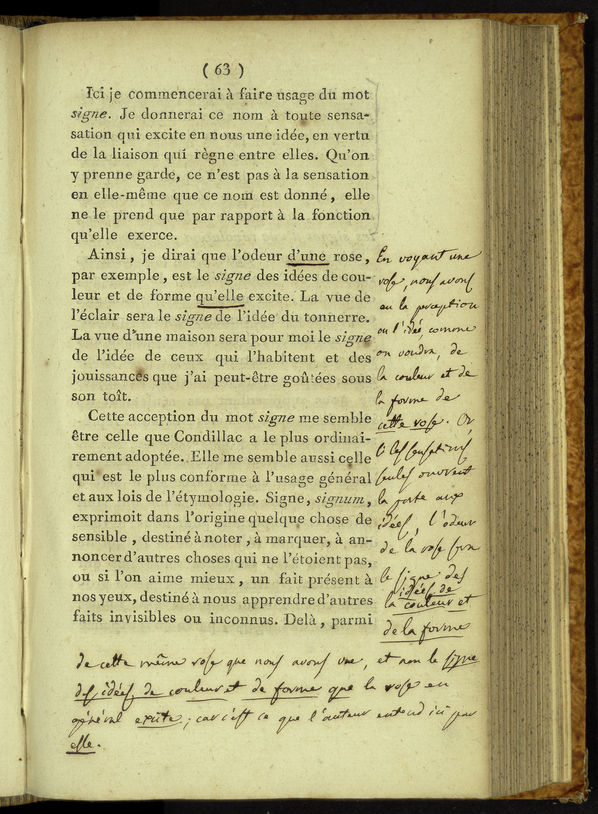 ( 63 )
Ici je commencerai à faire usage du mot
signe. Je donnerai ce nom à toute sensa-
sation qui excite en nous une idée, en vertu
de la liaison qui règne entre elles. Qu'on
y prenne garde, ce n'est pas à la sensation
en elle-même que ce nom est donné, elle
ne le prend que par rapport à la fonction
qu'elle exerce.
Ainsi, je dirai que l'odeur d'une rose,
par exemple, est le signe des idées de cou-
leur et de forme qu'elle excite. La vue de
l'éclair sera le signe de l'idée du tonnerre.
La vue d'une maison sera pour moi le signe
de l'idée de ceux qui l'habitent et des
jouissances que j'ai peut-être goûtées sous
son toît.
Cette acception du mot signe me semble
être celle que Condillac a le plus ordinai-
rement adoptée. Elle me semble aussi celle
qui est le plus conforme à l'usage général
et aux lois de l'étymologie. Signe, signum,
exprimoit dans l'origine quelque chose de
sensible, destiné à noter, à marquer, à an-
noncer d'autres choses qui ne l'étoient pas,
ou si l'on aime mieux, un fait présent à
nos yeux, destiné à nous apprendre d'autres
faits invisibles ou inconnus. Delà, parmi
En voyant une
rose, nous avons
eu la perception
ou l'idée, comme
on voudra, de
la couleur et de
la forme de
cette rose. Or
les sensations
seules ouvrent
la porte aux
idées, l'odeur
de la rose sera
le signe des
idées de
la couleur et
de la forme
de cette même rose que nous avons vue, et non le signe
des idées de couleur et de forme que la rose en
général excite; car c'est ce que l'auteur entend ici par
elle.